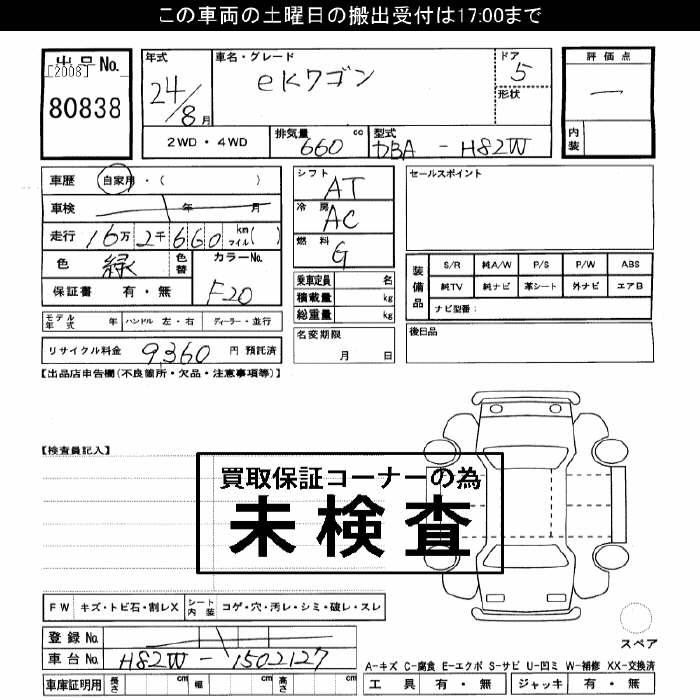 この車両の土曜日の搬出受付は17:00まで
出品No.
[2008]
80838
年式 24/8月
車名・グレード eKワゴン
ドア 5
形状
評価点 —
内装
2WD・4WD
排気量 660 cc
型式 DBA - H82W
車歴 自家用・( )
車検 年 月
走行 16万2千660 km マイル( )
色 緑 色替
カラーNo. F20
保証書 有・無
モデル年式 年 ハンドル 左・右 ディーラー・並行
リサイクル料金 9,360 円 預託済
シフト AT
冷房 AC
燃料 G
乗車定員 名
積載量 kg
総重量 kg
名変期限 月 日
セールスポイント
装備品
S/R 純A/W P/S P/W ABS
純TV 純ナビ 革シート 外ナビ エアB
ナビ型番:
後日品
【出品店申告欄(不良箇所・欠品・注意事項等)】
【検査員記入】
買取保証コーナーの為
未検査
FW キズ・トビ石・割レX シート内装 コゲ・穴・汚レ・シミ・破レ・スレ
登録No.
車台No. H82W - 1502127
車庫証明用 長さ cm 幅 cm 高さ cm
スペア
A-キズ C-腐食 E-エクボ S-サビ U-凹ミ W-補修 XX-交換済
工具 有・無 ジャッキ 有・無